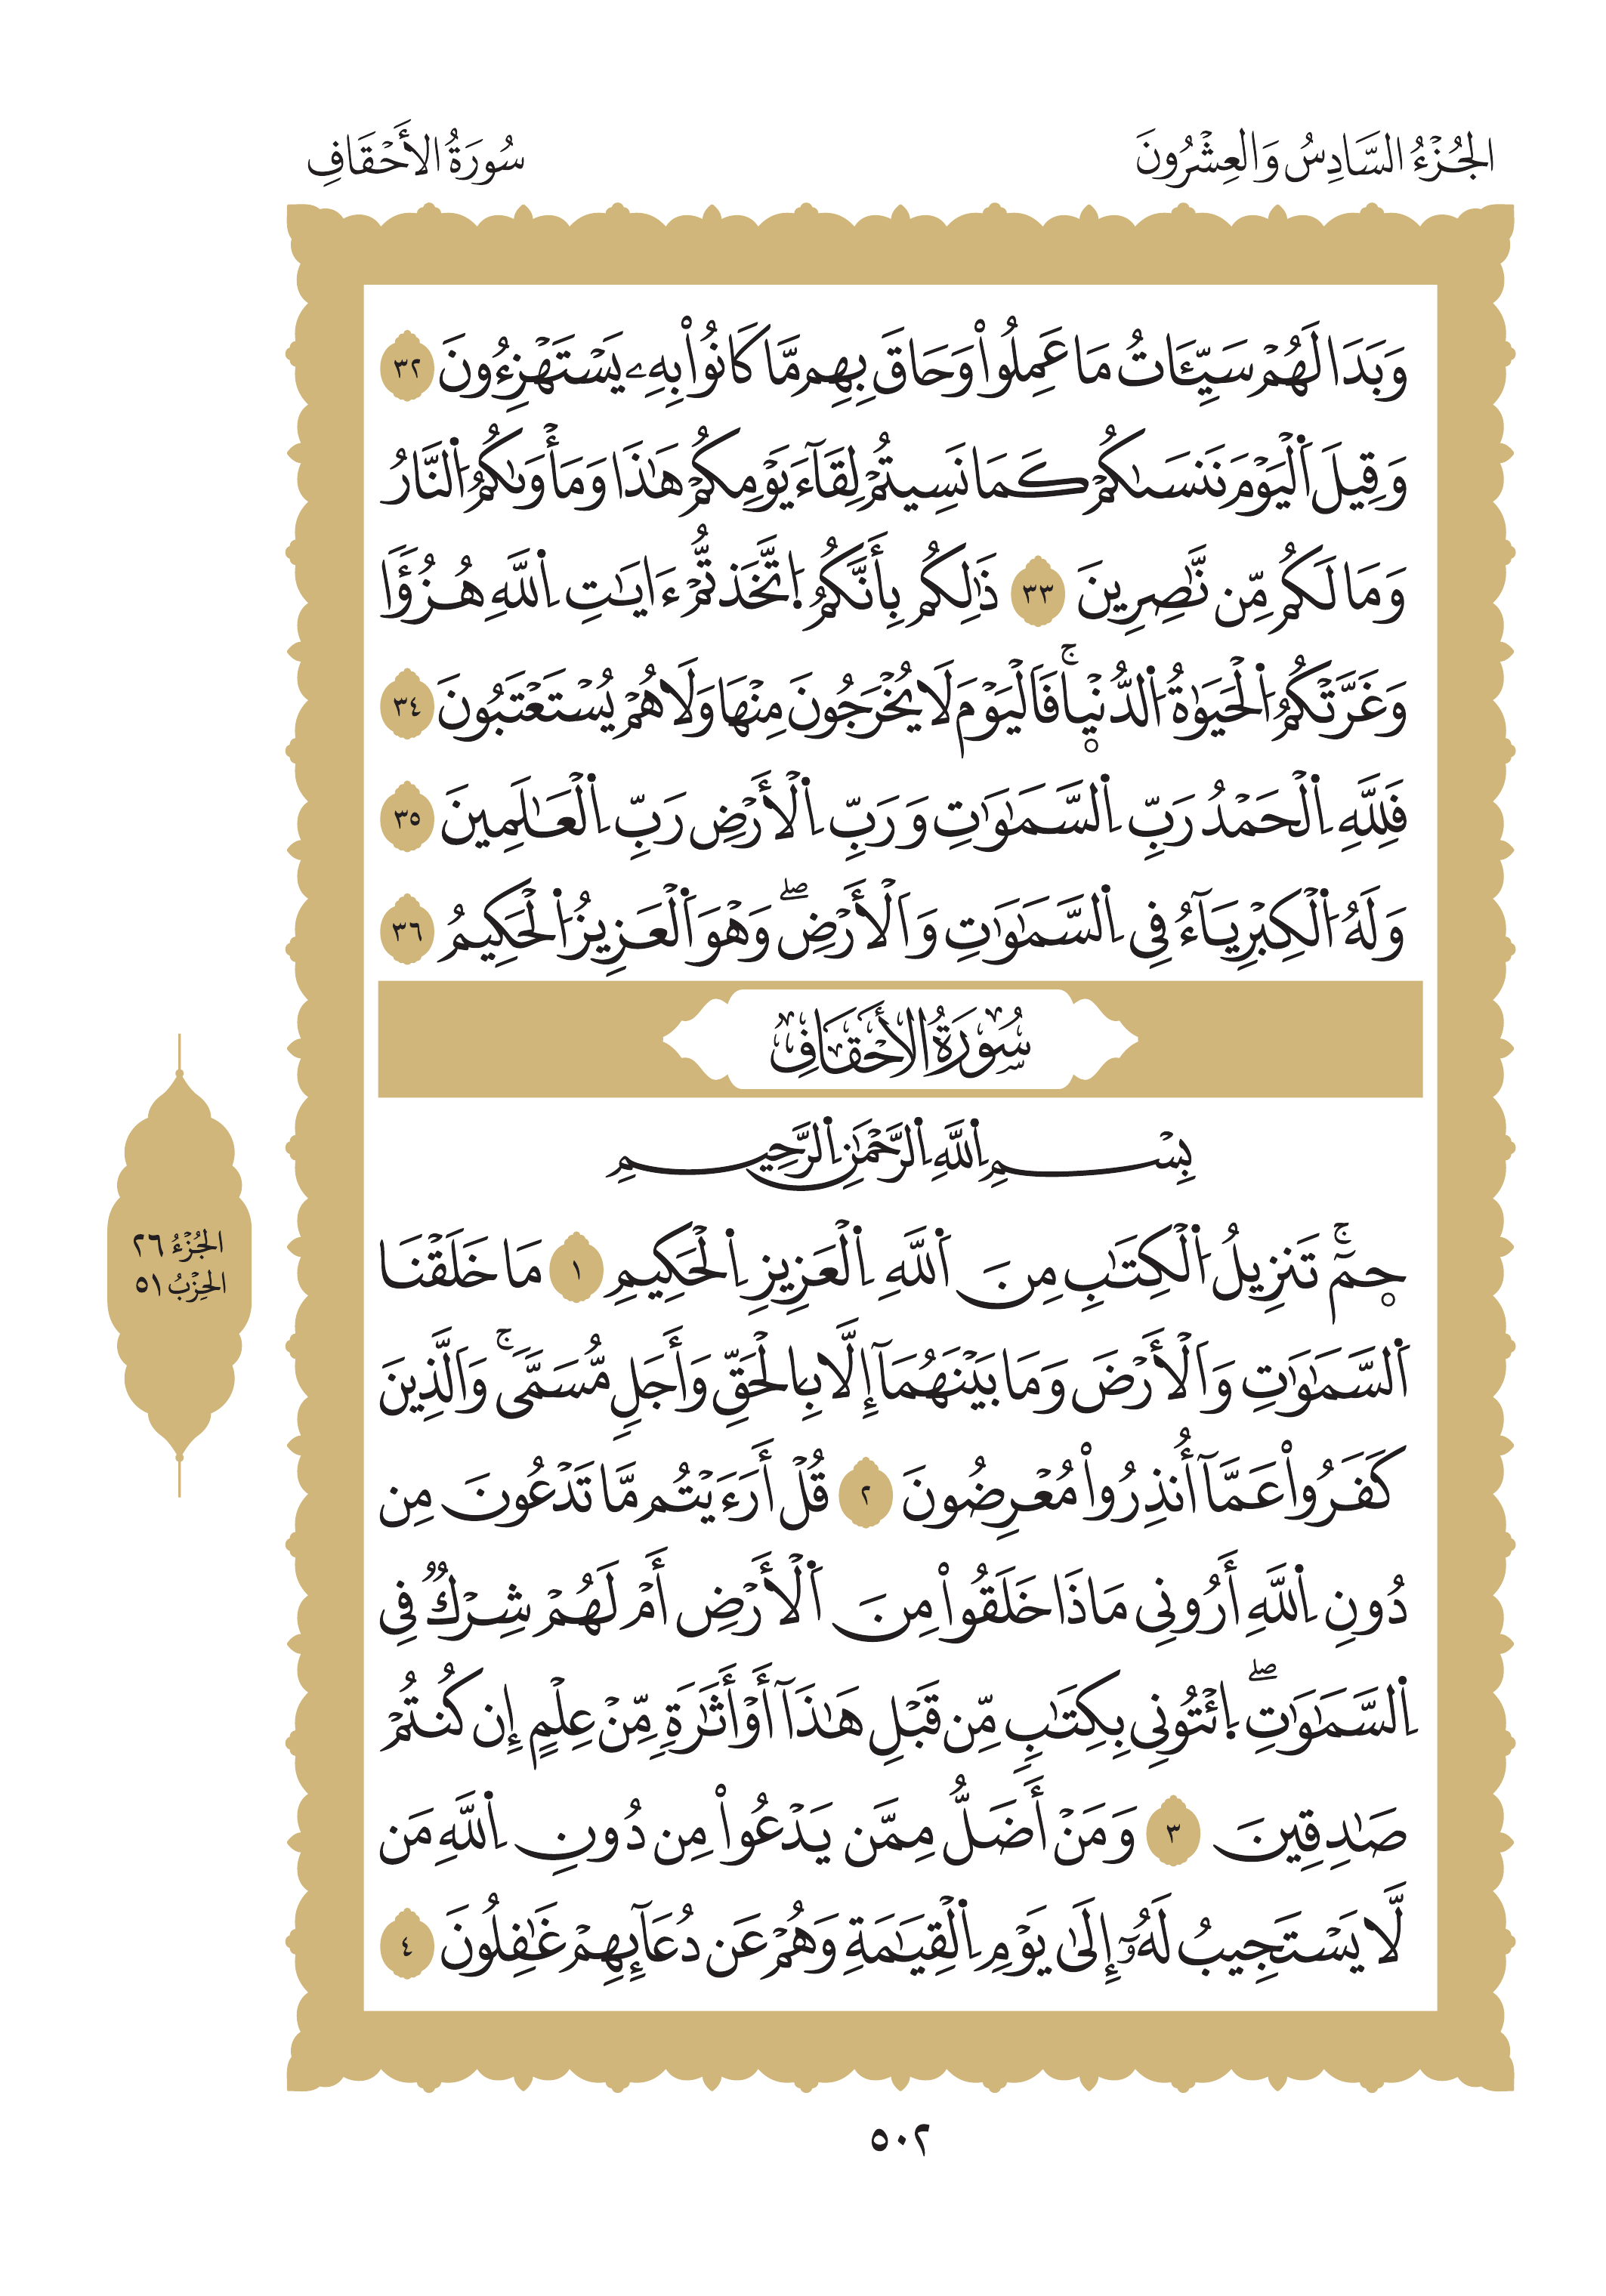 الجُزْءُ السَّادِسُ وَالعِشْرُونَ
سُورَةُ الأَحْقَافِ
وَبَدَا لَهُمْ سَيِّـَٔاتُ مَا عَمِلُواْ وَحَاقَ بِهِم مَّا كَانُواْ بِهِۦ يَسْتَهْزِءُونَ ٣٢
وَقِيلَ اَ۬لْيَوْمَ نَنسَىٰكُمْ كَمَا نَسِيتُمْ لِقَآءَ يَوْمِكُمْ هَٰذَا وَمَأْوَىٰكُمُ اُ۬لنَّارُ
وَمَا لَكُم مِّن نَّٰصِرِينَ ٣٣ ذَٰلِكُم بِأَنَّكُمُ اُ۪تَّخَذتُّمْ ءَايَٰتِ اِ۬للَّهِ هُزُؤٗا
وَغَرَّتْكُمُ اُ۬لْحَيَوٰةُ اُ۬لدُّنْي۪اۚ فَاَلْيَوْمَ لَا يُخْرَجُونَ مِنْهَا وَلَا هُمْ يُسْتَعْتَبُونَ ٣٤
فَلِلَّهِ اِ۬لْحَمْدُ رَبِّ اِ۬لسَّمَٰوَٰتِ وَرَبِّ اِ۬لْأَرْضِ رَبِّ اِ۬لْعَٰلَمِينَ ٣٥
وَلَهُ اُ۬لْكِبْرِيَآءُ فِي اِ۬لسَّمَٰوَٰتِ وَاَلْأَرْضِۖ وَهْوَ اَ۬لْعَزِيزُ اُ۬لْحَكِيمُ ٣٦
سُورَةُ الأَحْقَافِ
بِسْمِ اِ۬للَّهِ اِ۬لرَّحْمَٰنِ اِ۬لرَّحِيمِ
ح۪مٓۚ تَنزِيلُ اُ۬لْكِتَٰبِ مِنَ اَ۬للَّهِ اِ۬لْعَزِيزِ اِ۬لْحَكِيمِ ١ مَا خَلَقْنَا
اَ۬لسَّمَٰوَٰتِ وَاَلْأَرْضَ وَمَا بَيْنَهُمَآ إِلَّا بِالْحَقِّ وَأَجَلٖ مُّسَمّٗيۚ وَاَلَّذِينَ
كَفَرُواْ عَمَّآ أُنذِرُواْ مُعْرِضُونَ ٢ قُلْ أَرَءَيْتُم مَّا تَدْعُونَ مِن
دُونِ اِ۬للَّهِ أَرُونِي مَاذَا خَلَقُواْ مِنَ اَ۬لْأَرْضِ أَمْ لَهُمْ شِرْكٞ فِي
اِ۬لسَّمَٰوَٰتِۖ اِ۪ئْتُونِي بِكِتَٰبٖ مِّن قَبْلِ هَٰذَآ أَوْ أَثَٰرَةٖ مِّنْ عِلْمٍ إِن كُنتُمْ
صَٰدِقِينَ ٣ وَمَنْ أَضَلُّ مِمَّن يَدْعُواْ مِن دُونِ اِ۬للَّهِ مَن
لَّا يَسْتَجِيبُ لَهُۥٓ إِلَىٰ يَوْمِ اِ۬لْقِيَٰمَةِ وَهُمْ عَن دُعَآئِهِمْ غَٰفِلُونَ ٤
الجُزْءُ ٢٦
الحِزْبُ ٥١
٥٠٢